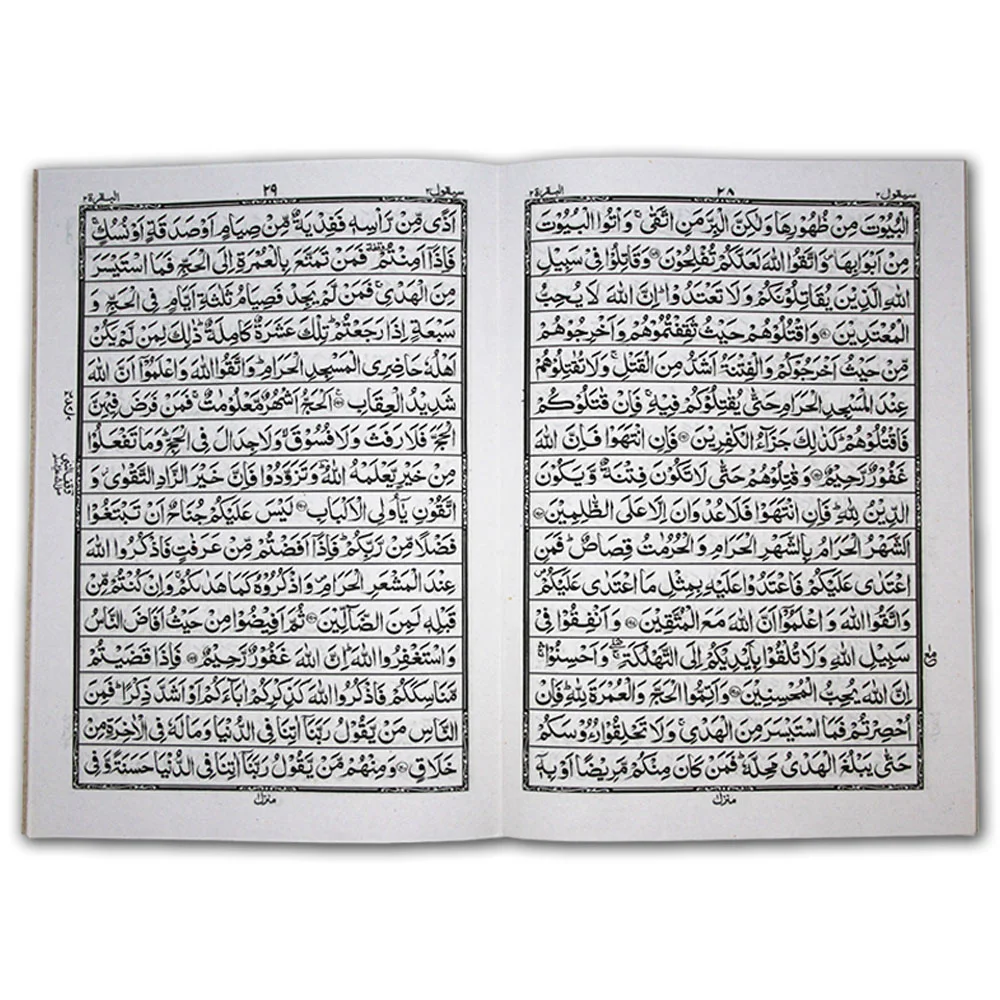 سيقول ٢
٢٨
البقرة ٢
الْبُيُوْتَ مِنْ ظُهُوْرِهَا وَلٰكِنَّ الْبِرَّ مَنِ اتَّقٰىۚ وَاْتُوا الْبُيُوْتَ
مِنْ اَبْوَابِهَا۪ وَاتَّقُوا اللّٰهَ لَعَلَّكُمْ تُفْلِحُوْنَ ﴿١٨٩﴾ وَقَاتِلُوْا فِىْ سَبِيْلِ
اللّٰهِ الَّذِيْنَ يُقَاتِلُوْنَكُمْ وَلَا تَعْتَدُوْاؕ اِنَّ اللّٰهَ لَا يُحِبُّ
الْمُعْتَدِيْنَ ﴿١٩٠﴾ وَاقْتُلُوْهُمْ حَيْثُ ثَقِفْتُمُوْهُمْ وَاَخْرِجُوْهُمْ
مِّنْ حَيْثُ اَخْرَجُوْكُمْ وَالْفِتْنَةُ اَشَدُّ مِنَ الْقَتْلِۚ وَلَا تُقٰتِلُوْهُمْ
عِنْدَ الْمَسْجِدِ الْحَرَامِ حَتّٰى يُقٰتِلُوْكُمْ فِيْهِۚ فَاِنْ قٰتَلُوْكُمْ
فَاقْتُلُوْهُمْؕ كَذٰلِكَ جَزَآءُ الْكٰفِرِيْنَ ﴿١٩١﴾ فَاِنِ انْتَهَوْا فَاِنَّ اللّٰهَ
غَفُوْرٌ رَّحِيْمٌ ﴿١٩٢﴾ وَقٰتِلُوْهُمْ حَتّٰى لَا تَكُوْنَ فِتْنَةٌ وَّيَكُوْنَ
الدِّيْنُ لِلّٰهِؕ فَاِنِ انْتَهَوْا فَلَا عُدْوَانَ اِلَّا عَلَى الظّٰلِمِيْنَ ﴿١٩٣﴾
اَلشَّهْرُ الْحَرَامُ بِالشَّهْرِ الْحَرَامِ وَالْحُرُمٰتُ قِصَاصٌؕ فَمَنِ
اعْتَدٰى عَلَيْكُمْ فَاعْتَدُوْا عَلَيْهِ بِمِثْلِ مَا اعْتَدٰى عَلَيْكُمْ۪
وَاتَّقُوا اللّٰهَ وَاعْلَمُوْۤا اَنَّ اللّٰهَ مَعَ الْمُتَّقِيْنَ ﴿١٩٤﴾ وَاَنْفِقُوْا فِىْ
سَبِيْلِ اللّٰهِ وَلَا تُلْقُوْا بِاَيْدِيْكُمْ اِلَى التَّهْلُكَةِۛ وَاَحْسِنُوْاۛ
اِنَّ اللّٰهَ يُحِبُّ الْمُحْسِنِيْنَ ﴿١٩٥﴾ وَاَتِمُّوا الْحَجَّ وَالْعُمْرَةَ لِلّٰهِؕ فَاِنْ
اُحْصِرْتُمْ فَمَا اسْتَيْسَرَ مِنَ الْهَدْىِۚ وَلَا تَحْلِقُوْا رُءُوْسَكُمْ
حَتّٰى يَبْلُغَ الْهَدْىُ مَحِلَّهٗؕ فَمَنْ كَانَ مِنْكُمْ مَّرِيْضًا اَوْ بِهٖۤ
منزل
سيقول ٢
٢٩
البقرة ٢
اَذًى مِّنْ رَّاْسِهٖ فَفِدْيَةٌ مِّنْ صِيَامٍ اَوْ صَدَقَةٍ اَوْ نُسُكٍۚ
فَاِذَاۤ اَمِنْتُمْ فَمَنْ تَمَتَّعَ بِالْعُمْرَةِ اِلَى الْحَجِّ فَمَا اسْتَيْسَرَ
مِنَ الْهَدْىِۚ فَمَنْ لَّمْ يَجِدْ فَصِيَامُ ثَلٰثَةِ اَيَّامٍ فِى الْحَجِّ وَ
سَبْعَةٍ اِذَا رَجَعْتُمْؕ تِلْكَ عَشَرَةٌ كَامِلَةٌؕ ذٰلِكَ لِمَنْ لَّمْ يَكُنْ
اَهْلُهٗ حَاضِرِى الْمَسْجِدِ الْحَرَامِؕ وَاتَّقُوا اللّٰهَ وَاعْلَمُوْۤا اَنَّ اللّٰهَ
شَدِيْدُ الْعِقَابِ ﴿١٩٦﴾ اَلْحَجُّ اَشْهُرٌ مَّعْلُوْمٰتٌۚ فَمَنْ فَرَضَ فِيْهِنَّ
الْحَجَّ فَلَا رَفَثَ وَلَا فُسُوْقَۙ وَلَا جِدَالَ فِى الْحَجِّؕ وَمَا تَفْعَلُوْا
مِنْ خَيْرٍ يَّعْلَمْهُ اللّٰهُؔ وَتَزَوَّدُوْا فَاِنَّ خَيْرَ الزَّادِ التَّقْوٰى وَ
اتَّقُوْنِ يٰۤاُولِى الْاَلْبَابِ ﴿١٩٧﴾ لَيْسَ عَلَيْكُمْ جُنَاحٌ اَنْ تَبْتَغُوْا
فَضْلًا مِّنْ رَّبِّكُمْؕ فَاِذَاۤ اَفَضْتُمْ مِّنْ عَرَفٰتٍ فَاذْكُرُوا اللّٰهَ
عِنْدَ الْمَشْعَرِ الْحَرَامِ۪ وَاذْكُرُوْهُ كَمَا هَدٰىكُمْۚ وَاِنْ كُنْتُمْ مِّنْ
قَبْلِهٖ لَمِنَ الضَّآلِّيْنَ ﴿١٩٨﴾ ثُمَّ اَفِيْضُوْا مِنْ حَيْثُ اَفَاضَ النَّاسُ
وَاسْتَغْفِرُوا اللّٰهَؕ اِنَّ اللّٰهَ غَفُوْرٌ رَّحِيْمٌ ﴿١٩٩﴾ فَاِذَا قَضَيْتُمْ
مَّنَاسِكَكُمْ فَاذْكُرُوا اللّٰهَ كَذِكْرِكُمْ اٰبَآءَكُمْ اَوْ اَشَدَّ ذِكْرًاؕ فَمِنَ
النَّاسِ مَنْ يَّقُوْلُ رَبَّنَاۤ اٰتِنَا فِى الدُّنْيَا وَمَا لَهٗ فِى الْاٰخِرَةِ مِنْ
خَلَاقٍ ﴿٢٠٠﴾ وَمِنْهُمْ مَّنْ يَّقُوْلُ رَبَّنَاۤ اٰتِنَا فِى الدُّنْيَا حَسَنَةً وَّفِى
منزل